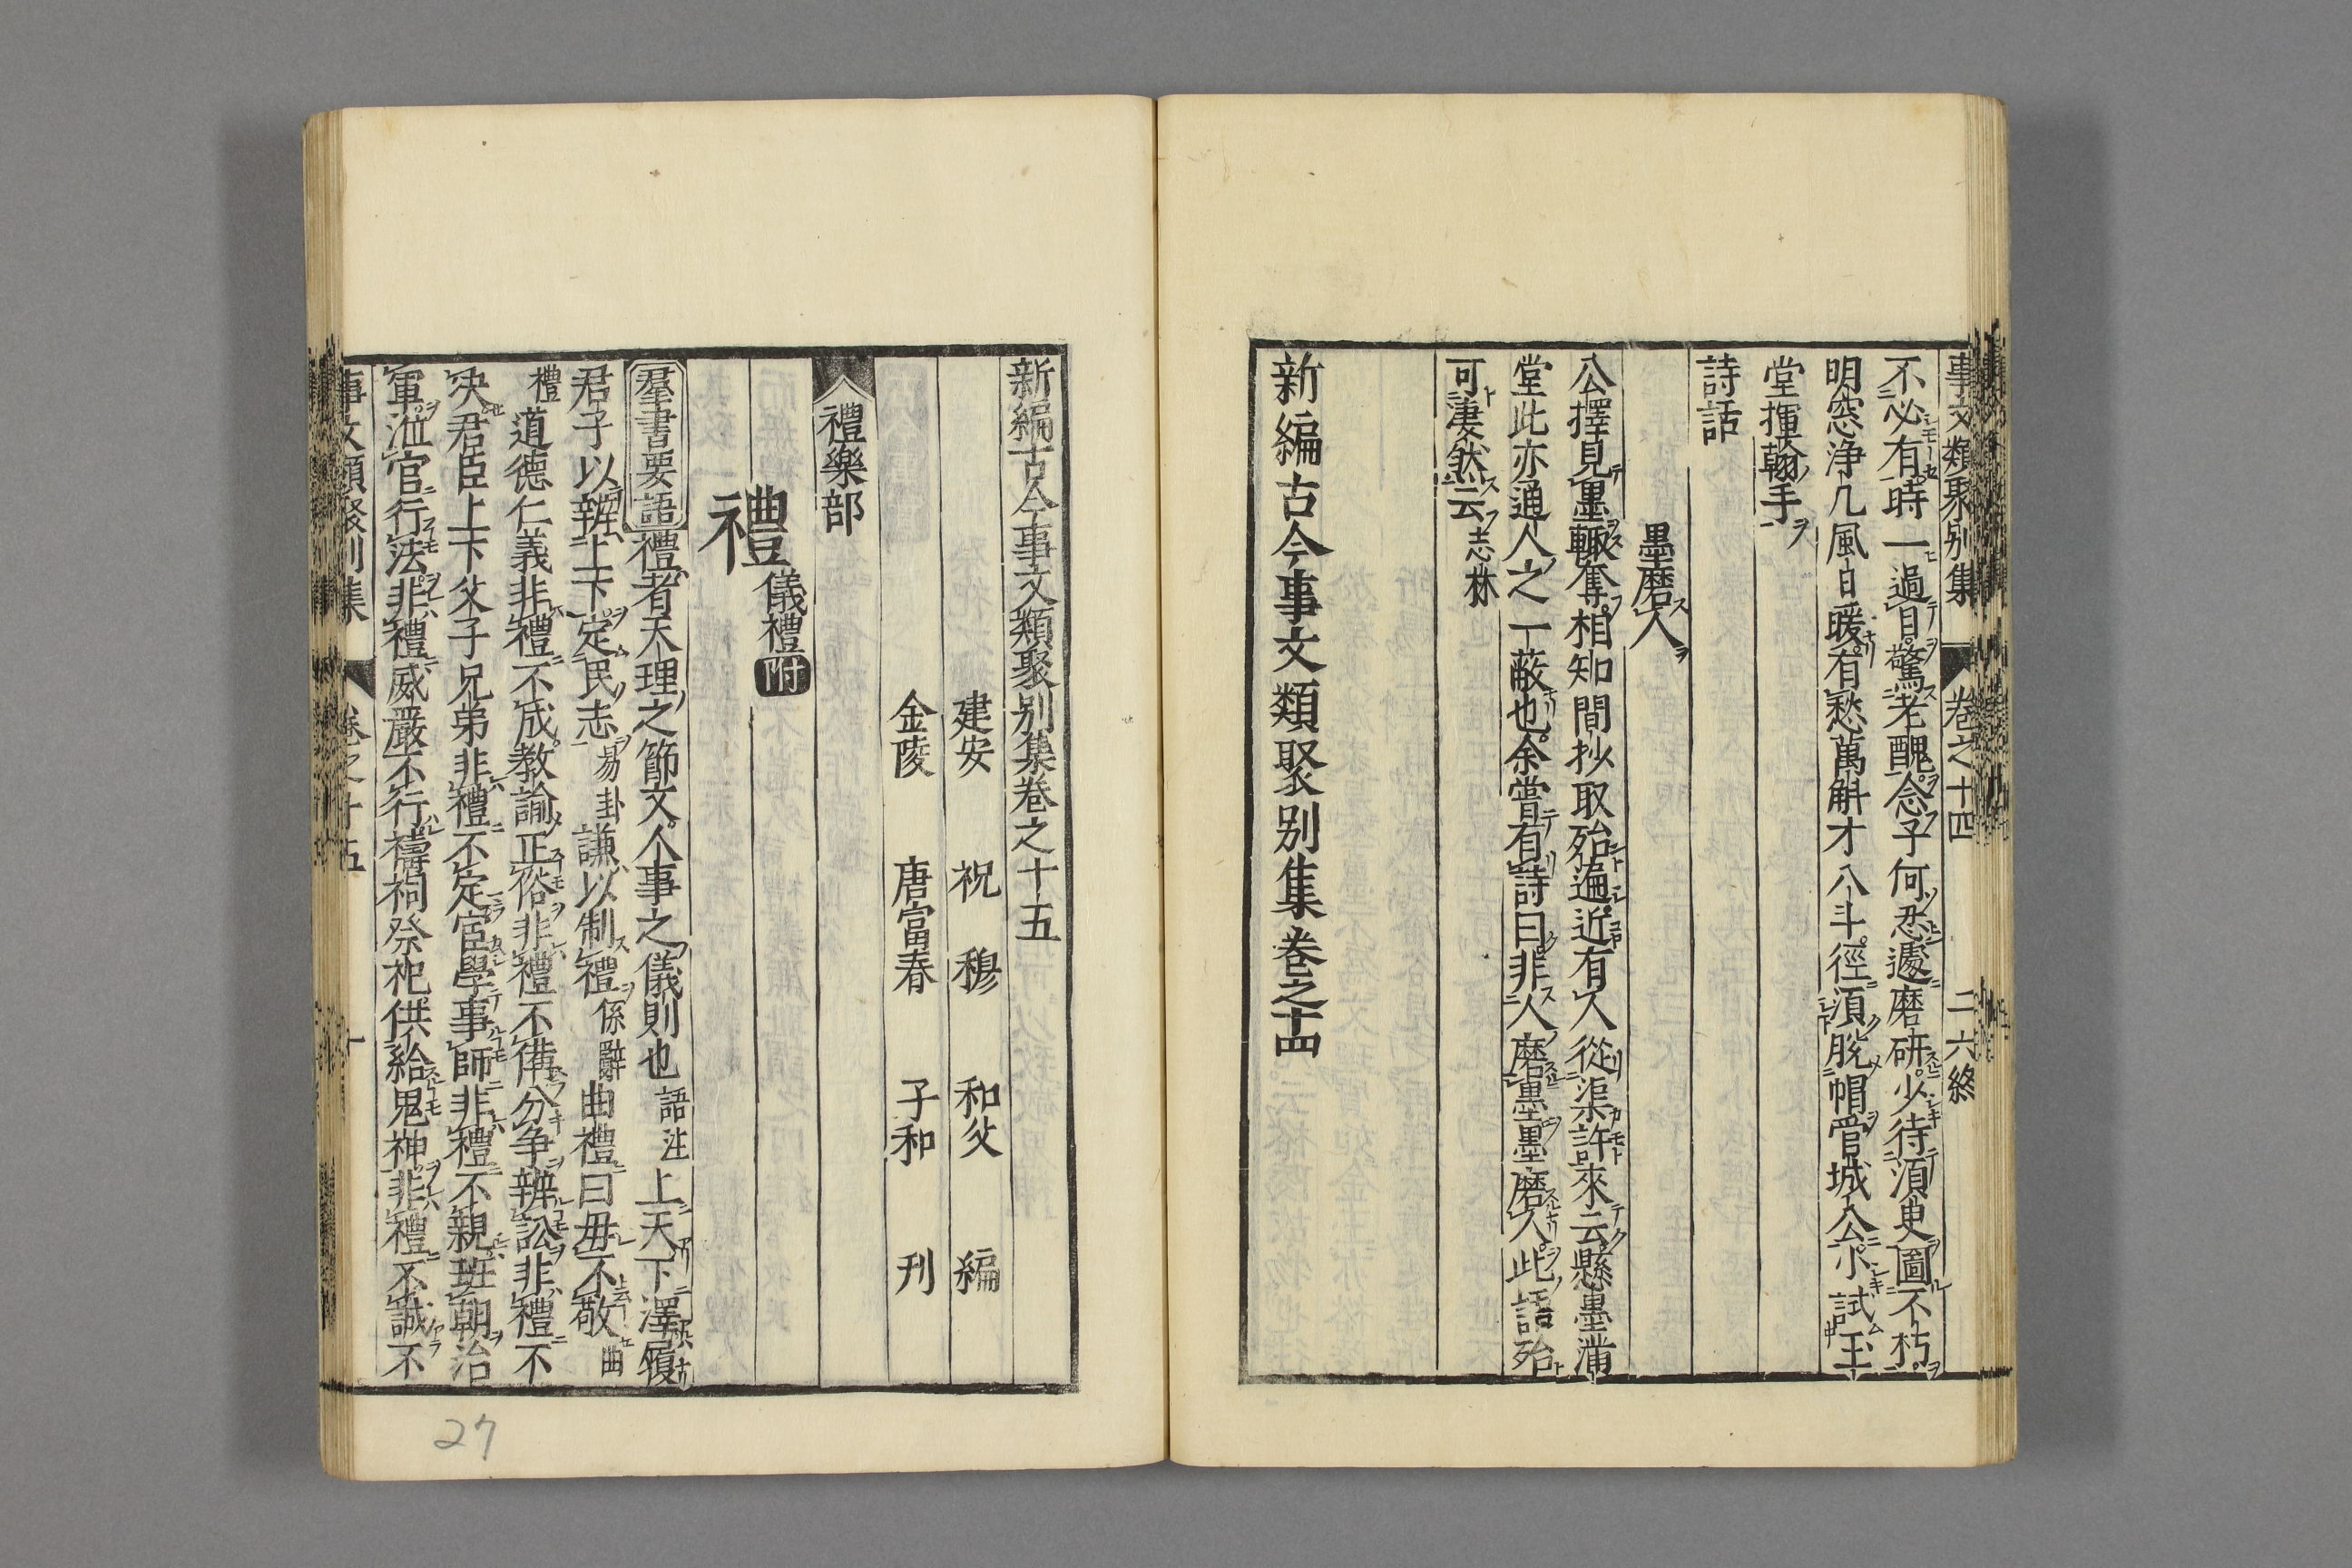 事文類聚别集 卷之十四 二六終
不必有時一過目驚老醜念子何忍遽磨研少待湏臾圖不朽
明窓浄几風日暖有愁萬斛才八斗徑湏脫帽管城公小試玉
堂揮翰手
詩話
墨磨人
公擇見墨輙奪相知間抄取殆遍近有人從渠許來云懸墨滿
堂此亦通人之一蔽也余嘗有詩曰非人磨墨墨磨人此語殆
可凄然云志林
新編古今事文類聚别集卷之十四
新編古今事文類聚别集卷之十五
建安 祝 穆 和父 編
金陵 唐富春 子和 刊
禮樂部
禮 儀禮附
羣書要語禮者天理之節文人事之儀則也語注上天下澤履
君子以辨上下定民志易卦謙以制禮係辭曲禮曰毋不敬曲
禮道德仁義非禮不成教諭正俗非禮不備分争辨訟非禮不
决君臣上下父子兄弟非禮不定宦學事師非禮不親班朝治
軍涖官行法非禮威嚴不行禱祠祭祀供給鬼神非禮不誠不
事文類聚别集 卷之十五 一
27